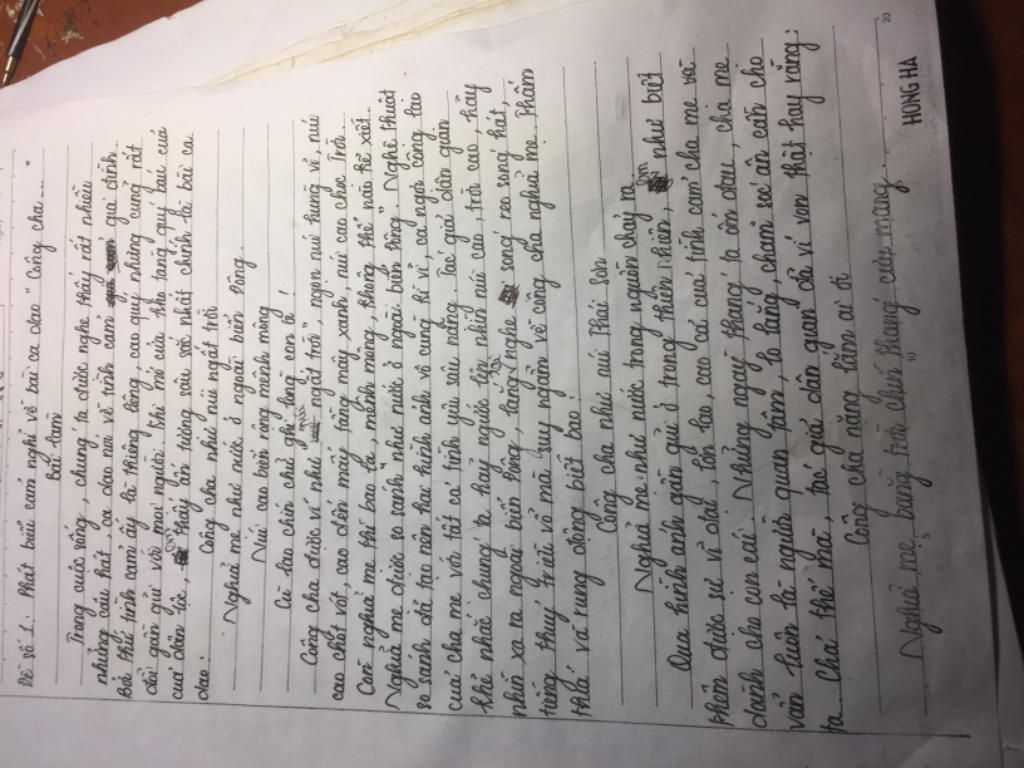 Đề số 1: Phát biểu cảm nghĩ về bài ca dao "Công cha....."
Bài làm
Trong cuộc sống, chúng ta được nghe thấy rất nhiều
những câu hát, ca dao nói về tình cảm gia đình.
Bởi thứ tình cảm ấy là thiêng liêng, cao quý nhưng cũng rất
đỗi gần gũi với mọi người. Khi mở cửa kho tàng quý báu của
của dân tộc, thấy ấn tượng sâu sắc nhất chính là bài ca
dao:
Công cha như núi ngất trời
Nghĩa mẹ như nước ở ngoài biển Đông.
Núi cao biển rộng mênh mông
Cù lao chín chữ ghi lòng con ơi!
Công cha được ví như núi ngất trời", ngọn núi hùng vĩ, núi
cao chót vót, cao đến mấy tầng mây xanh, núi cao chọc Trời.
Còn nghĩa mẹ thì bao la, mênh mông, không thể nào kể xiết.
Nghĩa mẹ được so sánh "như nước ở ngoài biển Đông". Nghệ thuật
so sánh đã tạo nên hai hình ảnh vô cùng kì vĩ, ca ngợi công lao
của cha mẹ với tất cả tình yêu sâu nặng. Tác giả dân gian
khẽ nhắc chúng ta hãy ngước lên nhìn núi cao, trời cao, hãy
nhìn xa ra ngoài biển Đông, lắng tai nghe sóng reo sóng hát,
tiếng thuỷ triều vỗ mà suy ngẫm về công cha nghĩa mẹ. Thấm
thía và rung động biết bao!
Công cha như núi Thái Sơn
Nghĩa mẹ như nước trong nguồn chảy ra
Qua hình ảnh gần gũi ở trong thiên nhiên, làm như bút
thần được sự vĩ đại, lớn lao, cao cả của tình cảm cha mẹ
dành cho con cái. Những ngày tháng ta ốm đau, cha mẹ
vẫn luôn là người quan tâm, lo lắng, chăm sóc ân cần cho
ta... Chả thế mà, tác giả dân gian đã ví von thật hay rằng:
Công cha nặng lắm ai ơi
Nghĩa mẹ bằng trời chín tháng cưu mang.
5
10
20
HONG HA